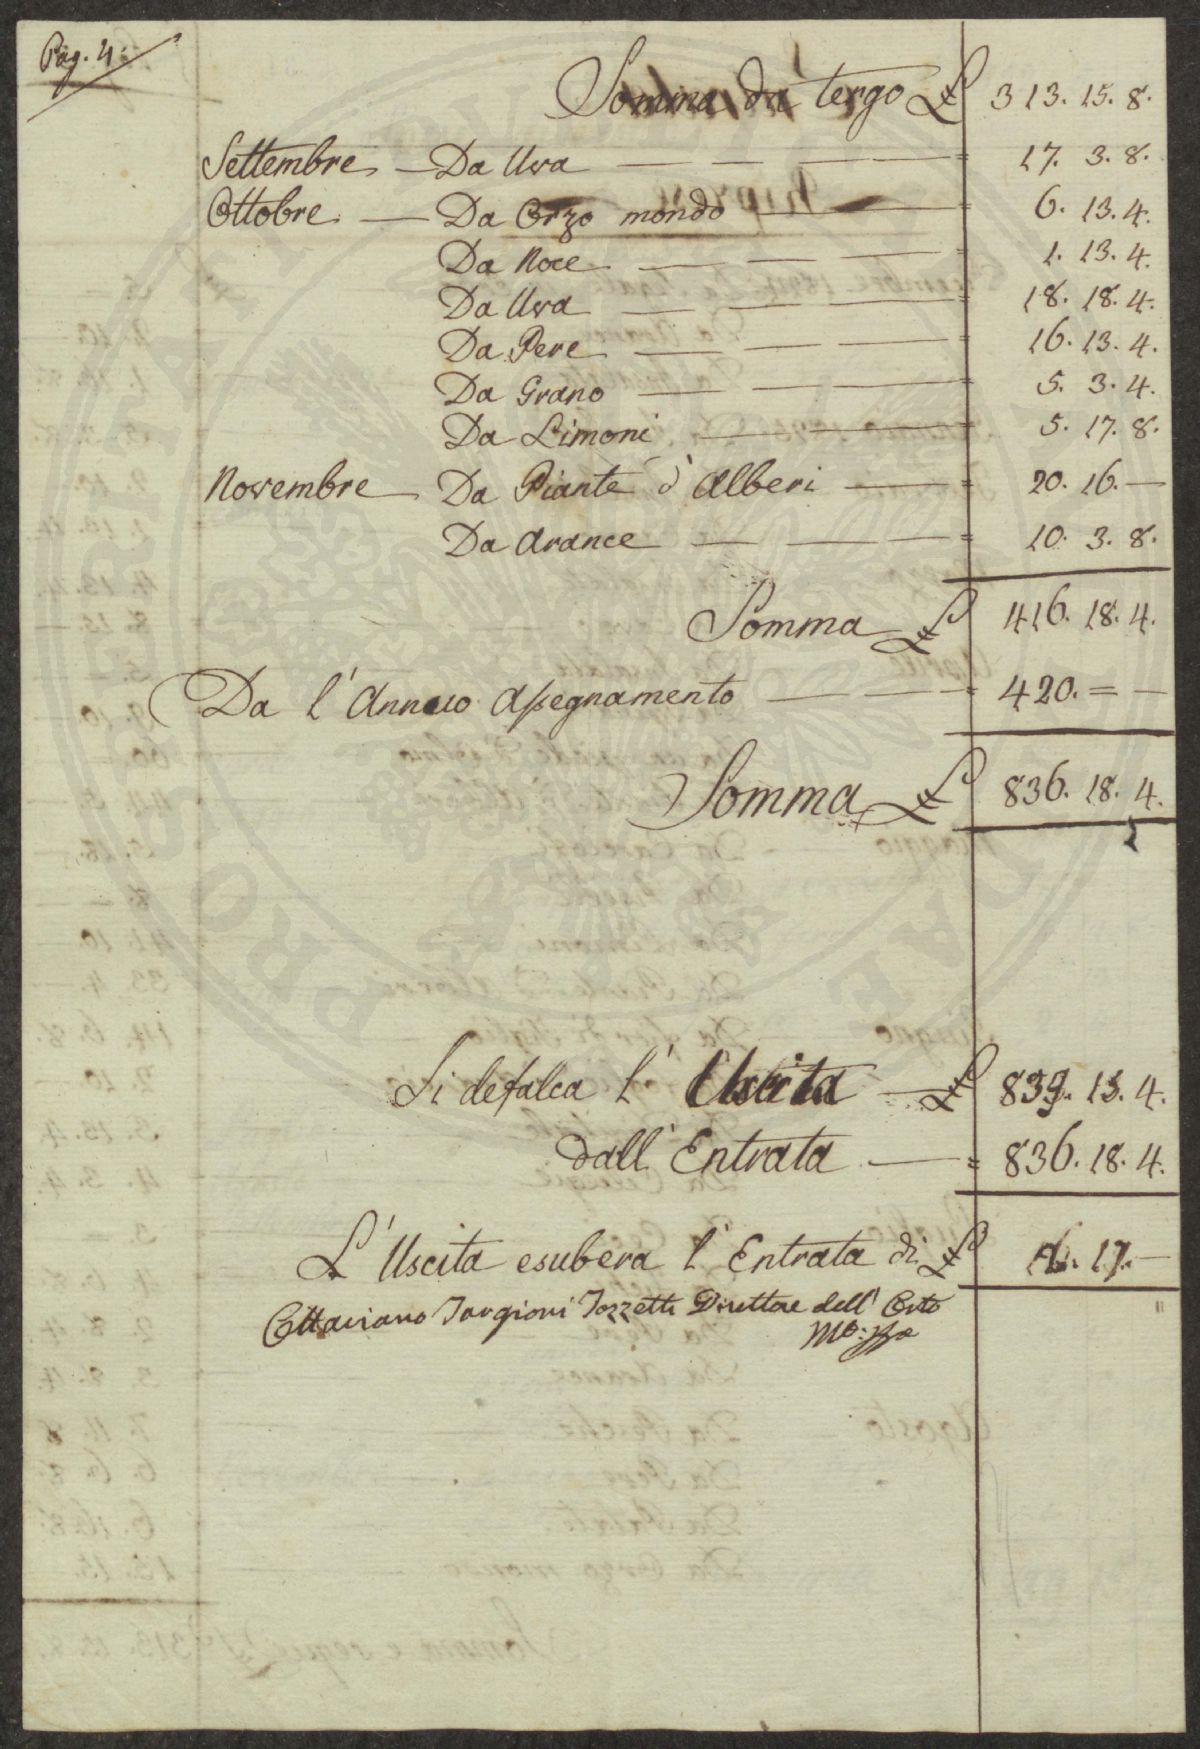 Pag. 4.
Somma da tergo £ 313. 15. 8.
Settembre — Da Uva — — — = 17. 3. 8.
Ottobre — Da Orzo mondo — = 6. 13. 4.
Da Noce — — — = 1. 13. 4.
Da Uva — — — = 18. 18. 4.
Da Pere — — — = 16. 13. 4.
Da Grano — — — = 5. 3. 4.
Da Limoni — — = 5. 17. 8.
Novembre — Da Piante d'Alberi — = 20. 16. —
Da Arance — — — = 10. 3. 8.
Somma £ 416. 18. 4.
Da l'Annuo Assegnamento — — = 420. = —
Somma £ 836. 18. 4.
Si defalca l'Uscita — £ 839. 15. 4.
dall'Entrata — = 836. 18. 4.
L'Uscita esubera l'Entrata di £ 17. —
Ottaviano Targioni Tozzetti Direttore dell'Orto